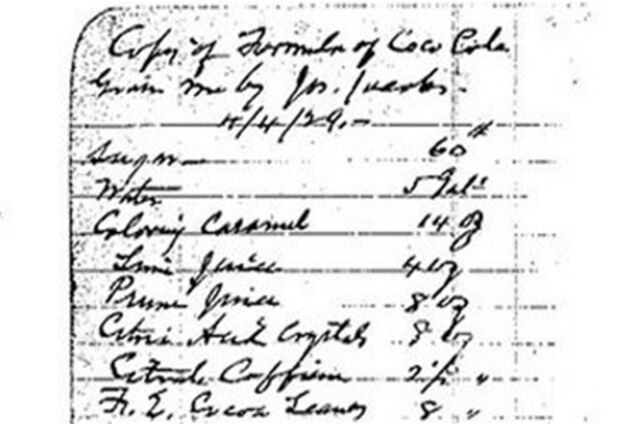 Copy of Formula of Coco Cola
Given me by Jos. Jacobs.
4/4/29.-
Sugar 60#
Water 5 Gals
Coloring Caramel 14 oz
Lime Juice 4 oz
Prune Juice 8 oz
Citric Acid Crystals 8 oz
Citrate Caffein 2½ "
F. E. Cocoa Leaves 8 "